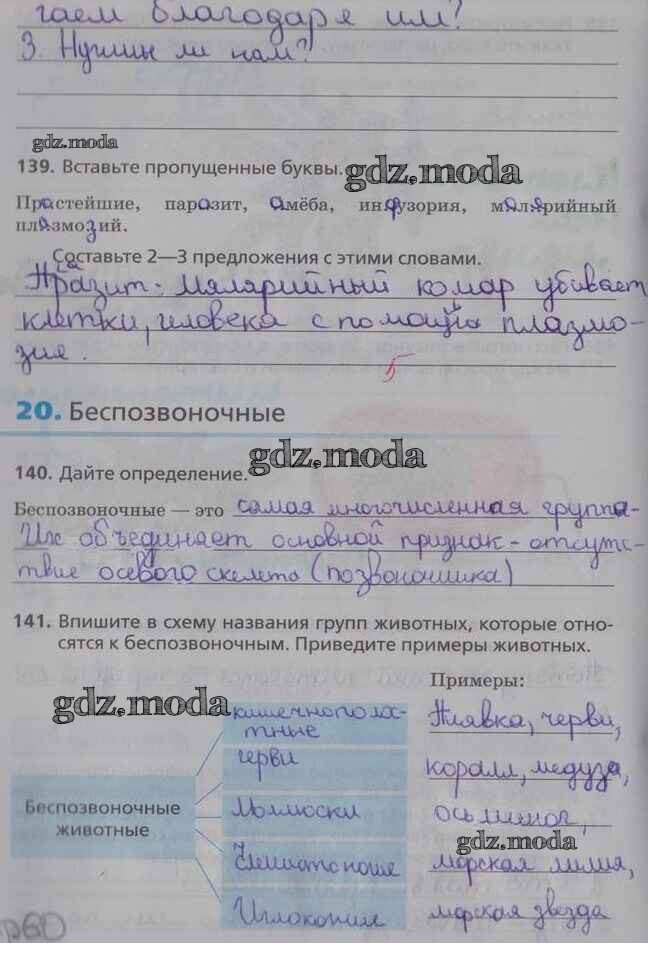 гаем благодаря им?
3. Нужни ли нам?
gdz.moda
139. Вставьте пропущенные буквы.
gdz.moda
Простейшие, паразит, амёба, инфузория, малярийный
плазмозий.
Составьте 2—3 предложения с этими словами.
Паразит - малярийный комар убивает
клетки, человека с помощью плазмо-
зия.
5
20. Беспозвоночные
gdz.moda
140. Дайте определение.
Беспозвоночные — это самая многочисленная группа-
Их объединает основной признак - отсутс-
твие осевого скелета (позвоношика)
141. Впишите в схему названия групп животных, которые отно-
сятся к беспозвоночным. Приведите примеры животных.
Примеры:
gdz.moda
кишечнополос-
тные
Пиявка, черви,
черви
коралл, медуза,
Беспозвоночные
животные
Моллюски
осьминог,
gdz.moda
Членистоногие
морская лилия,
Иглокожие
морская звезда